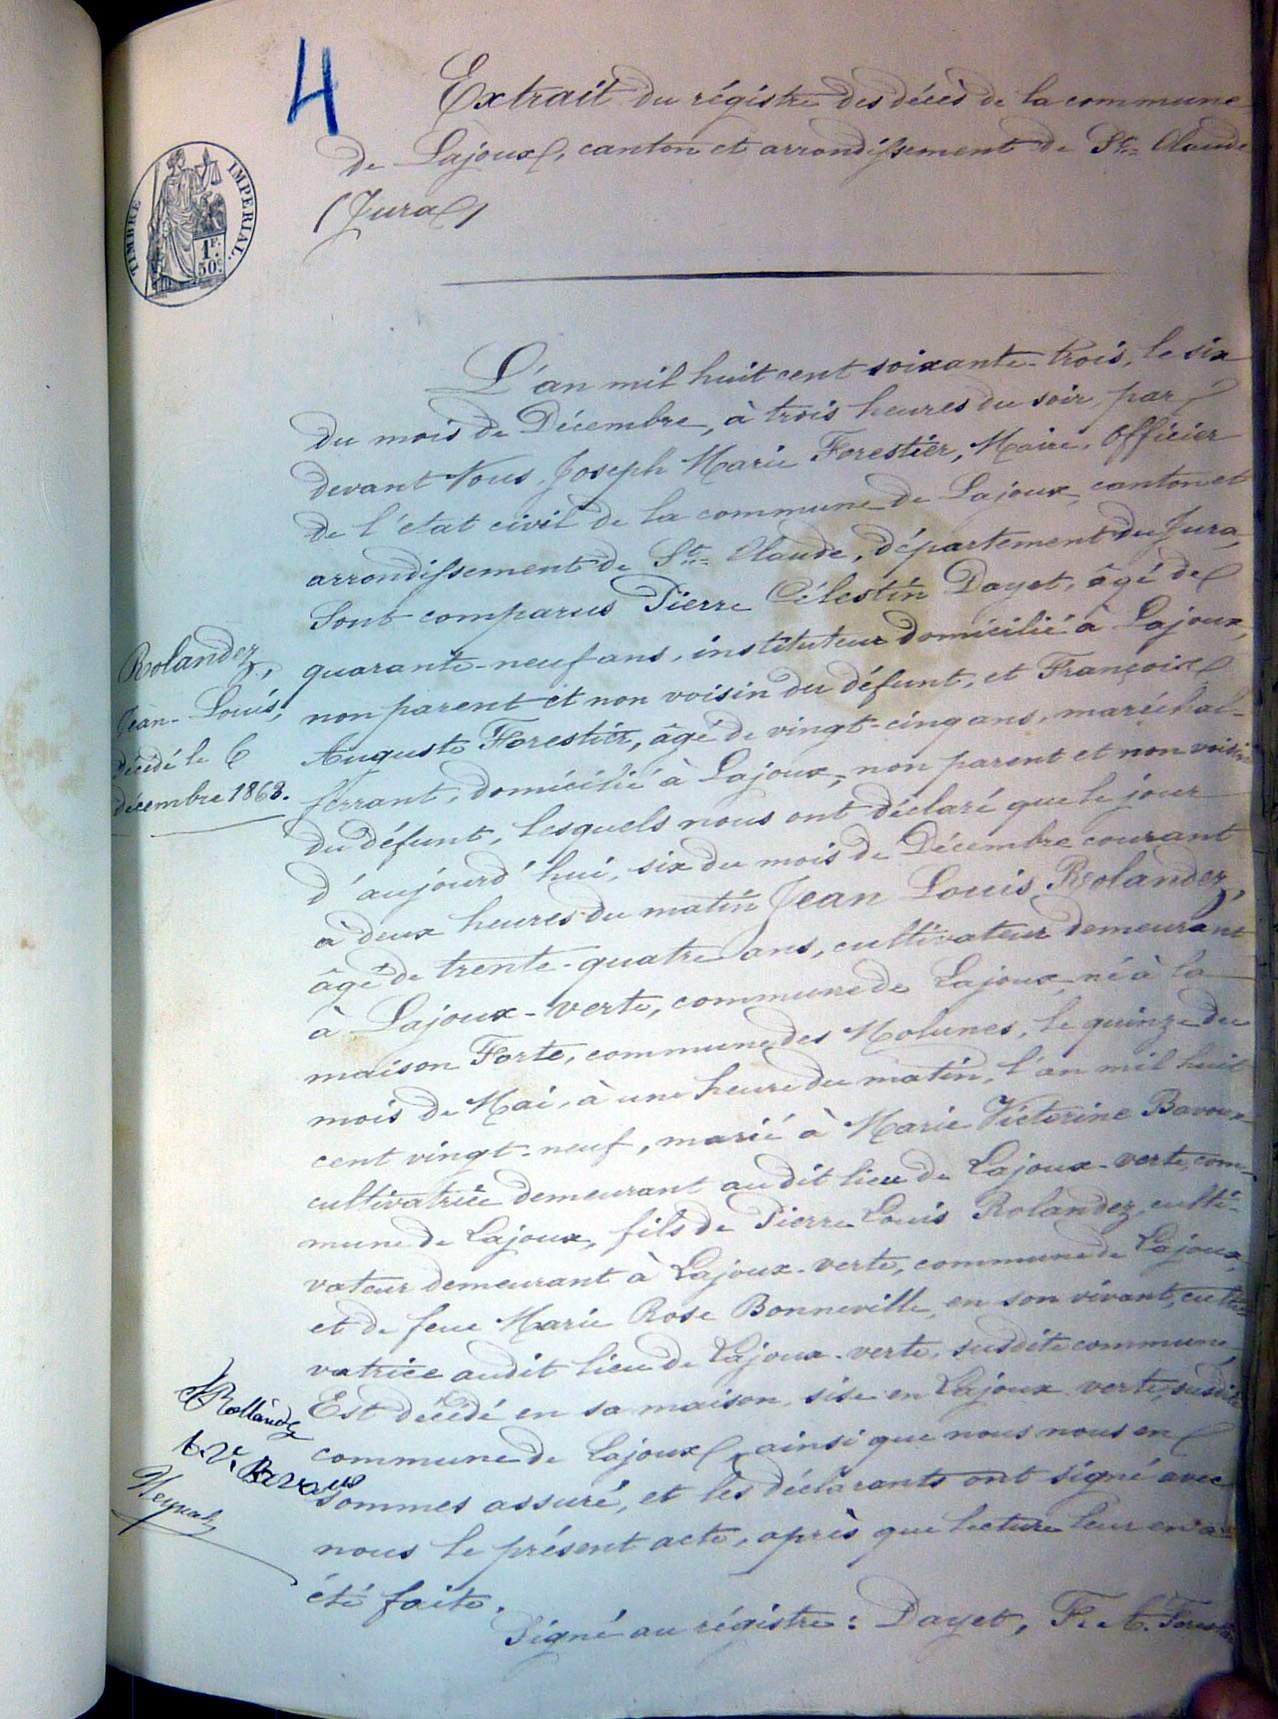 4
Extrait du régistre des décès de la commune
de Lajoux, canton et arrondissement de St.= Claude
(Jura)
TIMBRE IMPERIAL.
1F.
50c.
L'an mil huit cent soixante-trois, le six
du mois de Décembre, à trois heures du soir, par
devant Nous, Joseph Marie Forestier, Maire, Officier
de l'état civil de la commune de Lajoux, canton et
arrondissement de St.= Claude, département du Jura,
Sont comparus Pierre Célestin Dayet, âgé de
quarante-neuf ans, instituteur domicilié à Lajoux,
non parent et non voisin du défunt, et François
Auguste Forestier, âgé de vingt-cinq ans, maréchal-
ferrant, domicilié à Lajoux, non parent et non voisin
du défunt, lesquels nous ont déclaré que le jour
d'aujourd'hui, six du mois de Décembre courant
à deux heures du matin Jean Louis Rolandez,
âgé de trente-quatre ans, cultivateur demeurant
à Lajoux-verte, commune de Lajoux, né à la
maison Forte, commune des Molunes, le quinze du
mois de Mai, à une heure du matin, l'an mil huit
cent vingt-neuf, marié à Marie Victorine Bavoux
cultivatrice demeurant au dit lieu de Lajoux-verte, com-
mune de Lajoux, fils de Pierre Louis Rolandez, culti-
vateur demeurant à Lajoux-verte, commune de Lajoux,
et de feue Marie Rose Bonneville, en son vivant, culti-
vatrice audit lieu de Lajoux-verte, susdite commune,
Est décédé en sa maison, sise en Lajoux verte, susdite
commune de Lajoux, ainsi que nous nous en
sommes assuré, et les déclarants ont signé avec
nous le présent acte, après que lecture leur en a
été faite.
Signé au régistre: Dayet, F. A. Forestier
Rolandez,
Jean-Louis,
décédé le 6
décembre 1863.